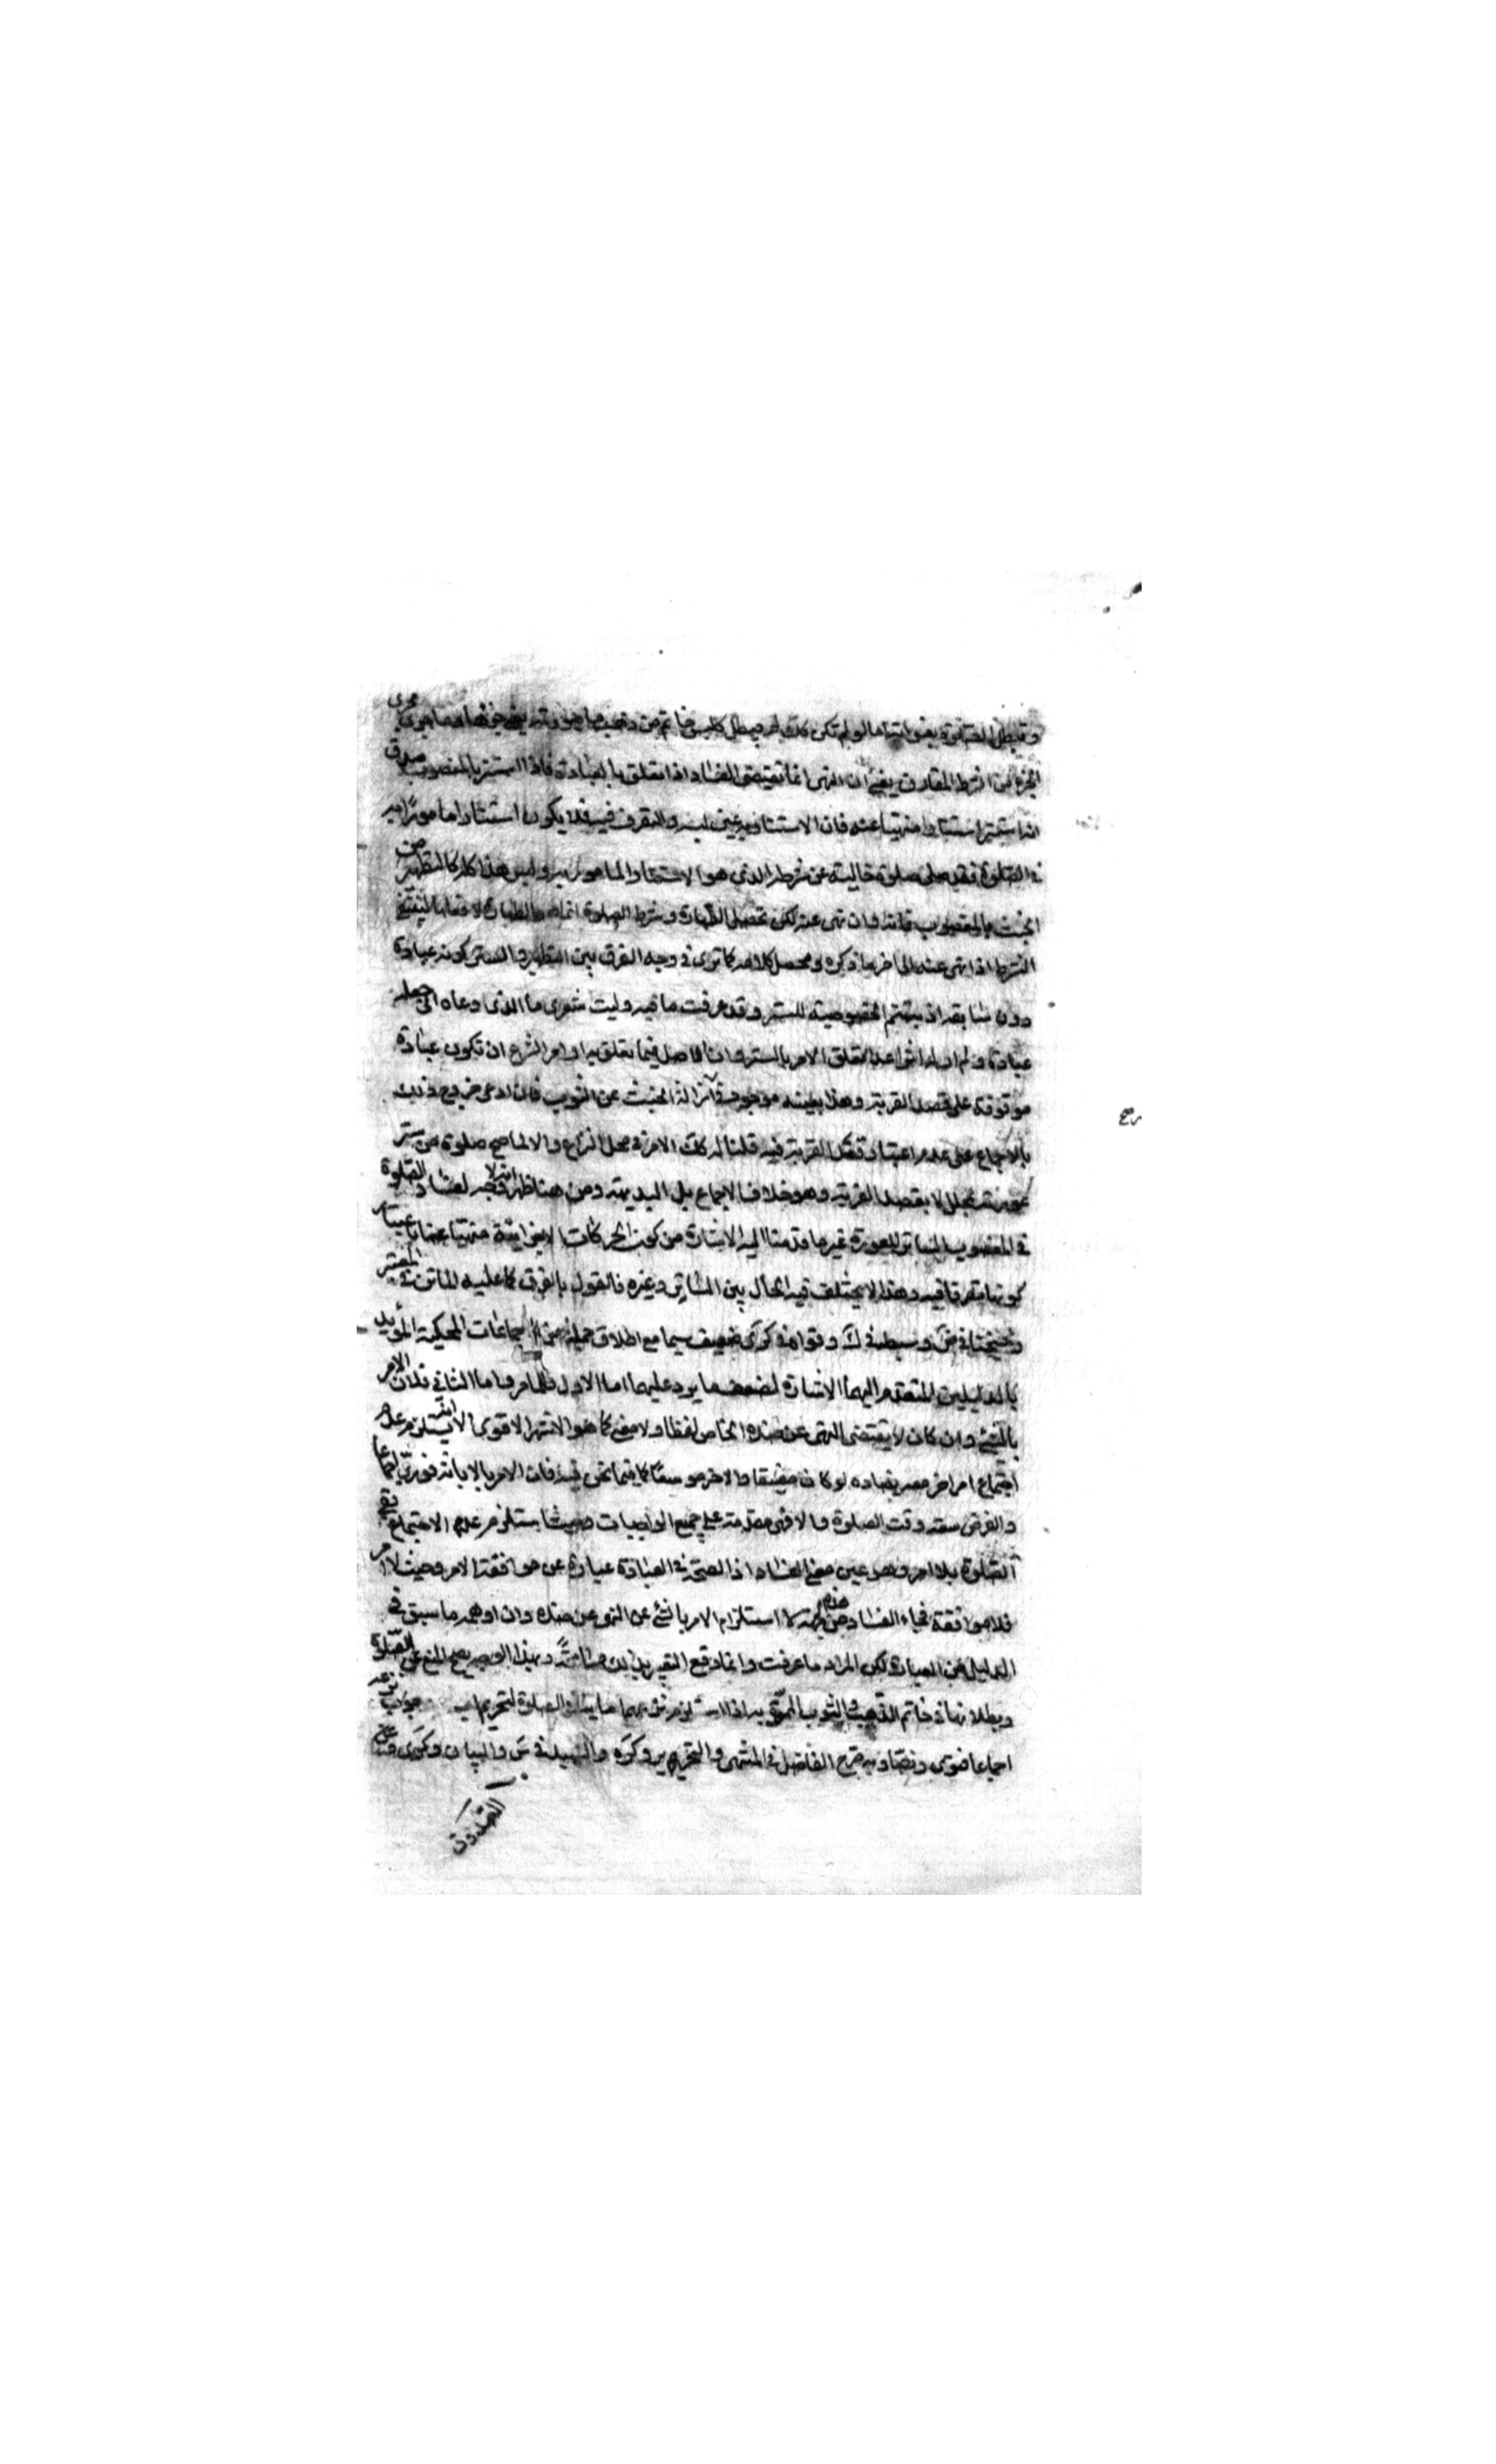 وتبطل الصلوة بفواتها اما لو لم تكن كك لم تبطل كلبس خاتم من ذهب
الجزء من الشرط المقارن يعني ان النهى انما تقتضى الفساد اذا تعلق بالعبادة فاذا استتر بالمغصوب صدق
انه استتر استتارا منهيا عنه فان الاستتار به عين لبسه والتصرف فيه فلا يكون استتارا مامورا به
فى الصلوة فقد صلى صلوة خالية عن شرطها الذى هو الاستتار المامور به وليس هذا كالتطهير من
الخبث بالمغصوب فانه وان نهى عنه لكن تحصل الطهارة وشرط الصلوة انما هو الطهارة لا فعلها
الشرط اذا نهى عنه الى اخر ما ذكره ومحصل كلامه كما ترى فى وجه الفرق بين التطهير والستر كونه عبادة
دون سابقه اذ بهتم الخصوصية للستر وقد عرفت ما فيه وليت شعرى ما الذى دعاه الى جعله
عبادة ولم ار له اثرا عدا تعلق الامر بالستر وان الاصل فيما تعلق به اوامر الشرع ان تكون عبادة
موقوفة على قصد القربة وهذا بعينه موجود فى ازالة الخبث عن الثوب فان ادعى خروج ذلك
بالاجماع على عدم اعتبار قصد القربة فيه قلنا له كك الامر فى محل النزاع والا لما صح صلوة من ستر
عورته بمحلل لا بقصد القربة وهو خلاف الاجماع بل البديهة ومن هنا ظهر انه لا وجه لفساد الصلوة
فى المغصوب الساتر للعورة غير ما قدمنا اليه الاشارة من كون الحركات الاجزائية منهيا عنها باعتبار
كونها تصرفا فيه وهذا لا يختلف فيه الحال بين الساتر وغيره فالقول بالفرق كما عليه الماتن فى المعتبر
وشيخنا فى ض وسبطه فى ك وقواه فى كرى ضعيف سيما مع اطلاق جملة من الاجماعات المحكية المؤيد
بالدليلين المتقدم اليهما الاشارة لضعف ما يرد عليهما اما الاول فلما مر واما الثانى فلان الامر
بالشئ وان كان لا يقتضى النهى عن ضده الخاص لفظا ولا معنى كما هو الاشهر الاقوى الا انه يستلزم عدم
اجتماع امر اخر معه يضاده لو كان مضيقا والاخر موسعا كما فيما نحن فيه فان الامر بالابانة فورى اجماعا
والفرض سعة وقت الصلوة والا فهى مقدمة على جميع الواجبات وحيث استلزم عدم الاجتماع بقى
الصلوة بلا امر وهو عين معنى الفساد اذ الصحة فى العبادة عبارة عن موافقة الامر وحيث لا امر
فلا موافقة فجاء الفساد من هذه الجهة لا استلزام الامر بالشئ عن النهى عن ضده وان اوهمه ما سبق فى
الدليل من العبارة لكن المراد ما عرفت وانما وقع التعبير بذلك مسامحة وبهذا الوجه يصح المنع عن الصلوة
وبطلانها فى خاتم الذهب والثوب المموه به اذا استلزم نزعهما ما ينافى الصلوة لتحريم
اجماعا فتوى ونصا وبه صرح الفاضل فى المنتهى والتحرير وكره والشهيد فى س والبيان وكرى
الصدوق